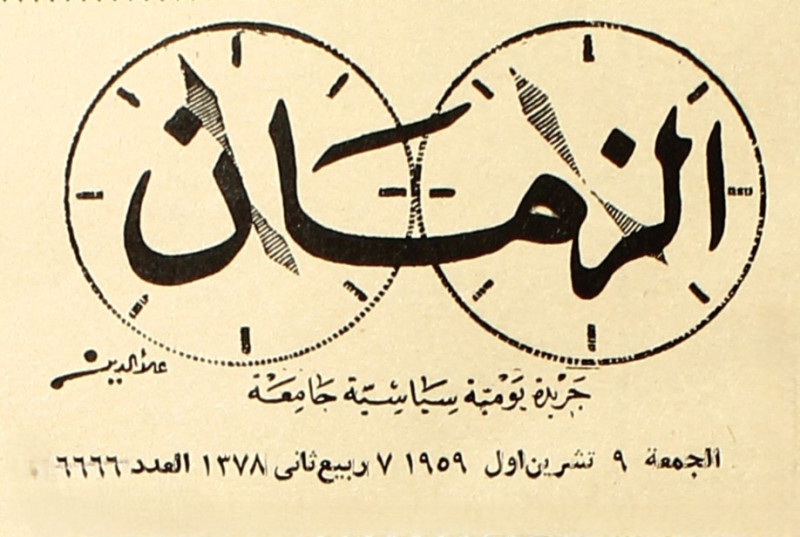 الزمان
علاءالدين
جَرْيدة يَوْميّة سِيَاسْيّة جَامِعَة
الجمعة ٩ تشرين اول ١٩٥٩ ٧ ربيع ثانى ١٣٧٨ العدد ٦٦٦٦